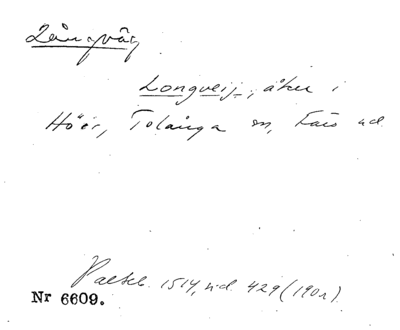 Långväg
Longveij, åker i
Höör, Tolånga sn, Färs hd.
Palteb. 1514, nd. 429 (190r).
Nr 6609.